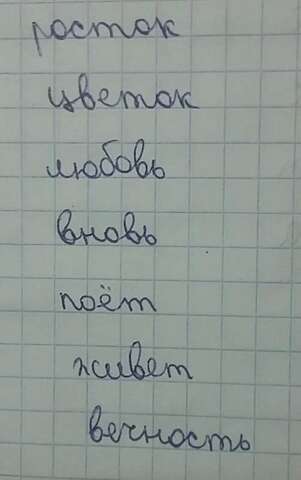 росток
цветок
любовь
вновь
поёт
живет
вечность